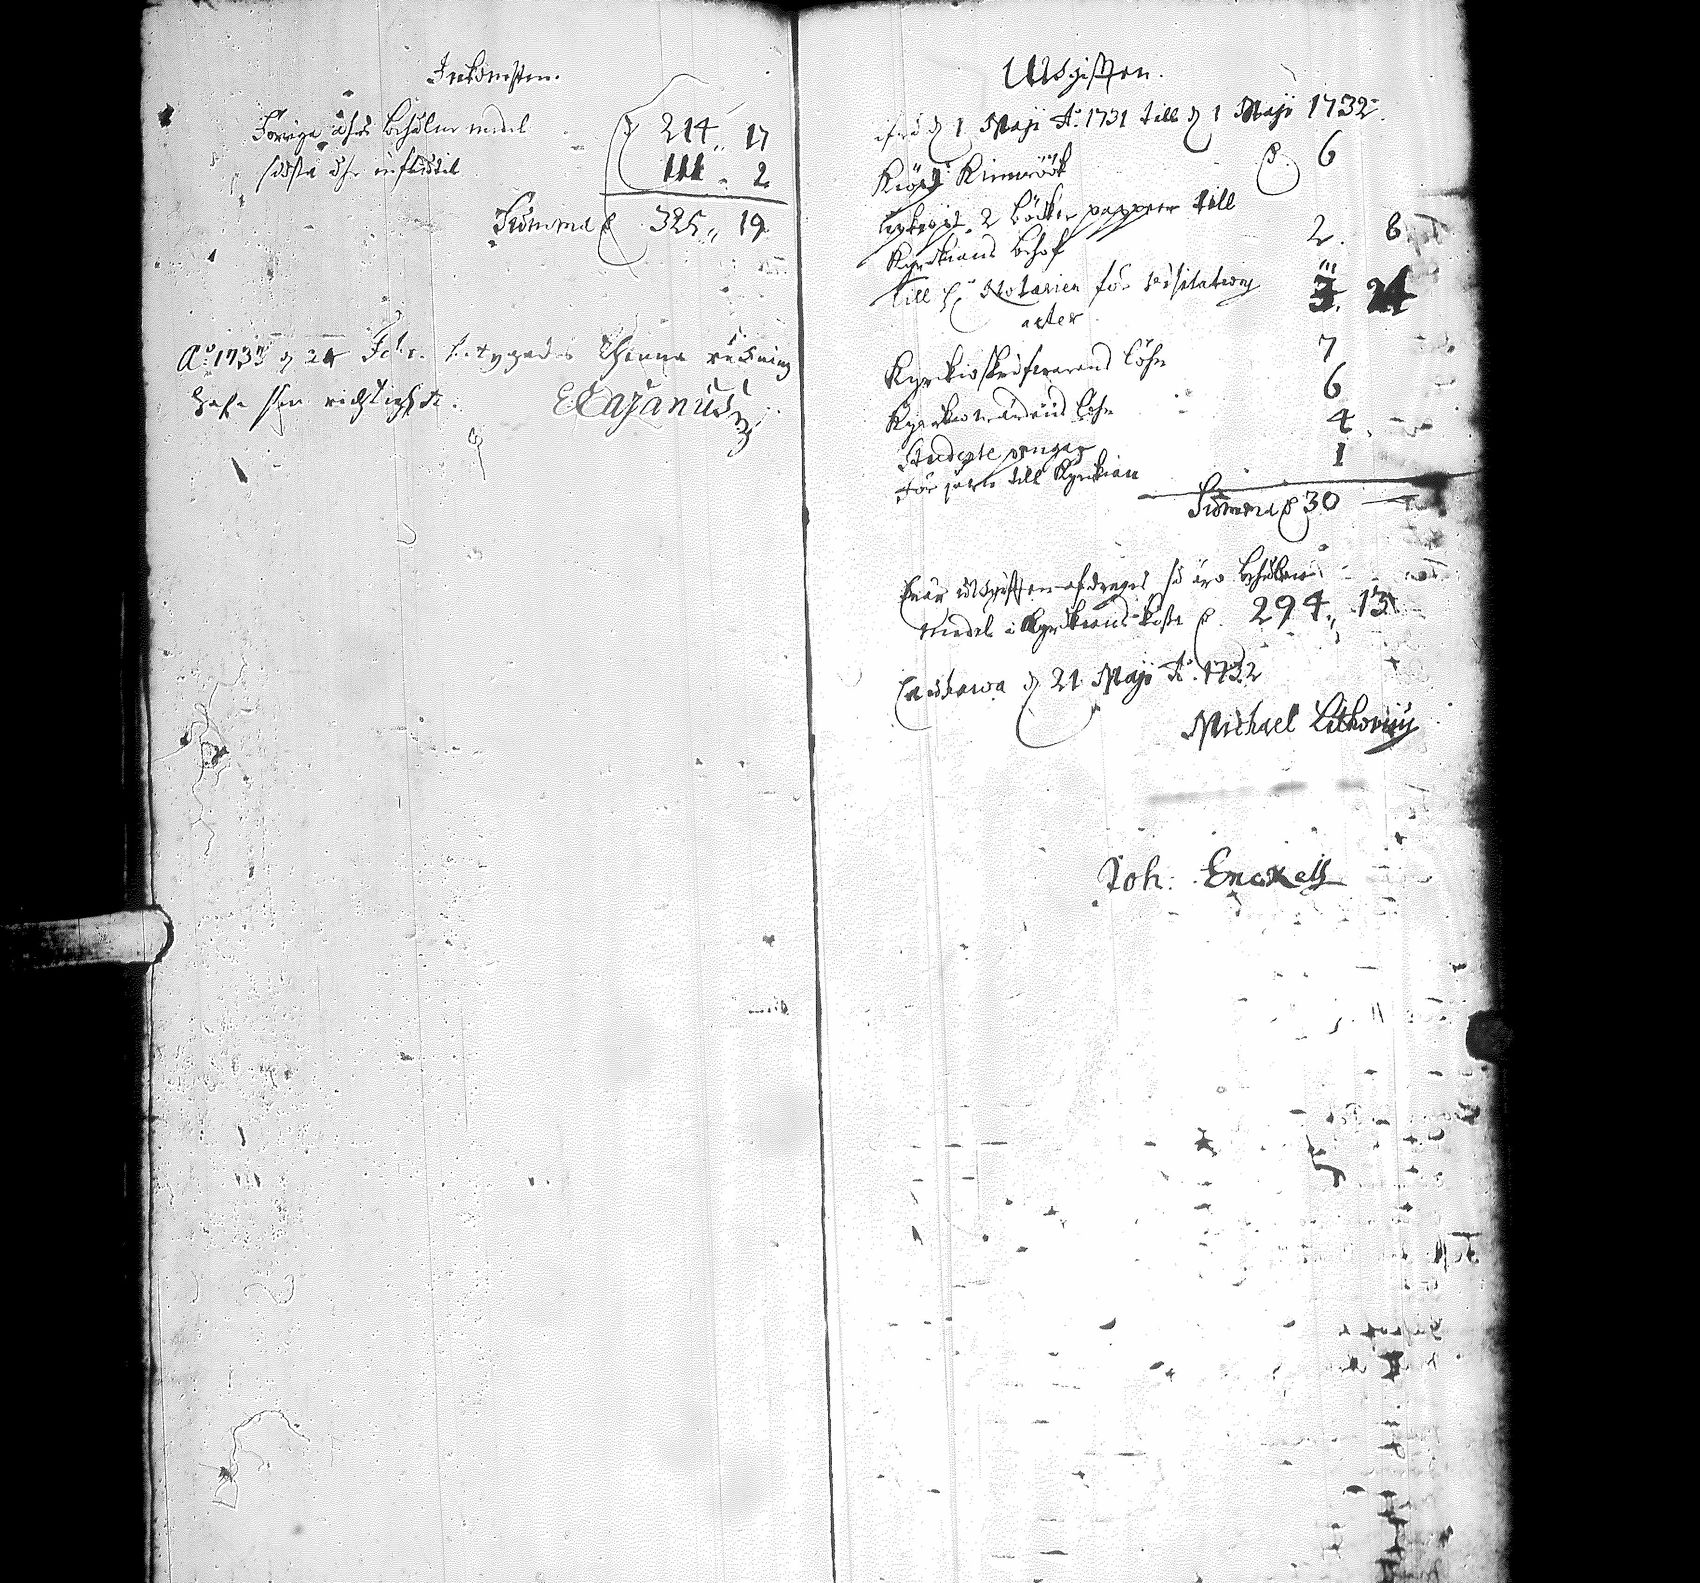 Inkomsten.
Förriga åhrs behålne medel 214 17
sidsta åhr influtit 111 2
Summa 325 19
A:o 1733 d 24 Febr. betygades thenna räkning
hafa sin richtighet.
E Cajanus
Utgifften.
ifrå d 1 Maji A:o 1731 till d 1 Maji 1732.
Kiöpt Kimröök 6
2 böcker papper till
Kyrkians behof 2. 8
till H. Notarien för visitations 3. 24
acter
Kyrkioskrifwarens löhn 7
Kyrkiowärdens löhn 6
Studente pengar 4
till Kyrkian 1
Summa 30
När utgifften afdrages så äro behåldne
medel i Kyrkians kista 294 13
Laukawa d 21 Maji A:o 1732
Michael Lithovius
Joh: Enckell